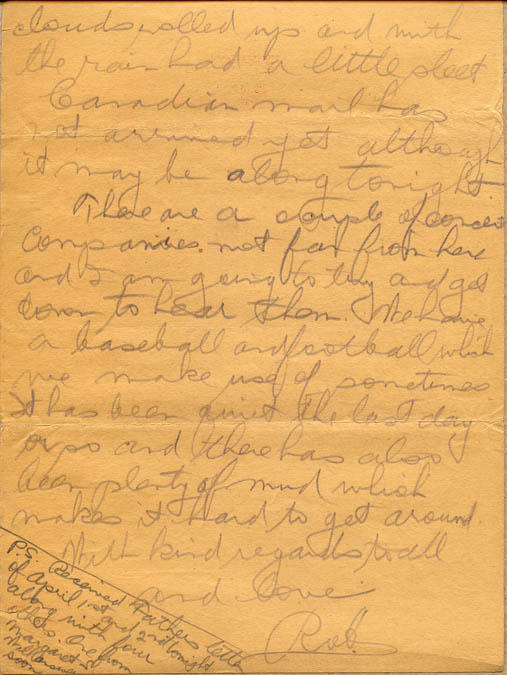 clouds rolled up and with
the rain had a little sleet
Canadian mail has
not arrived yet although
it may be along tonight.
There are a couple of concert
companies not far from here
and I am going to try and get
down to hear them. We have
a baseball and football which
we make use of sometimes
It has been quiet the last day
or so and there has also
been plenty of mud which
makes it hard to get around.
With kind regards to all
and love.
Rob.
P.S. Received Fathers letter
of April 1st and 2nd tonight
along with four
others. One from
Margaret
Will answer
soon